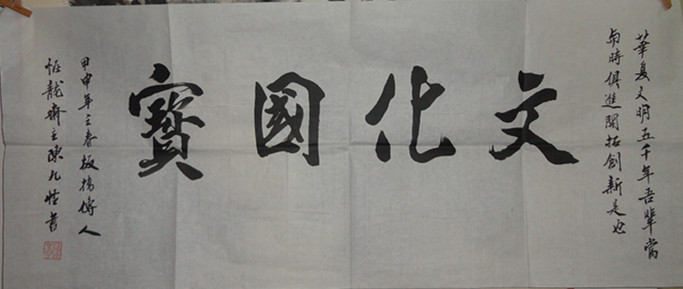 華夏文明五千年吾輩當
与時俱進開拓創新是也
文化國寶
甲申年立春板橋傳人
恆龍齋主陳九恆書